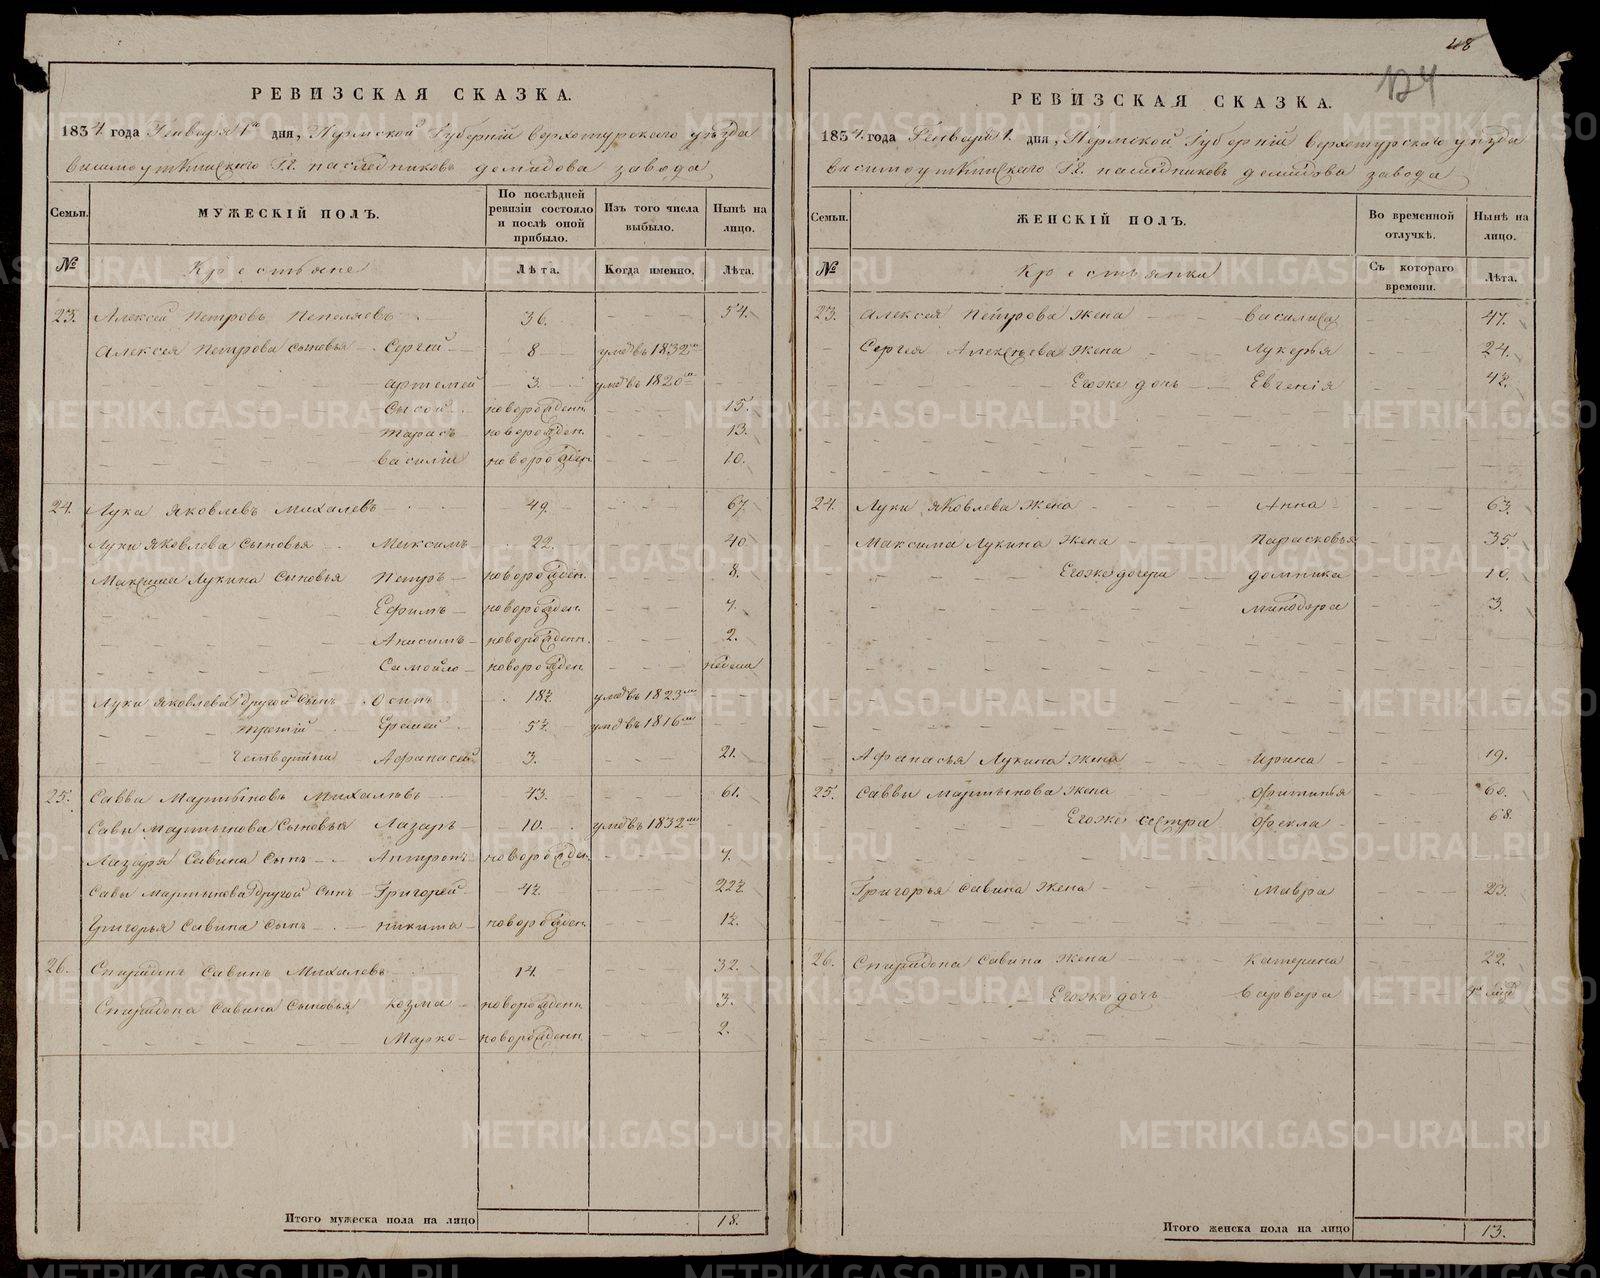 48
124
РЕВИЗСКАЯ СКАЗКА.
1834. года Генваря 1го дня, Пермской Губерніи верхотурскаго уѣзда
висимоуткинскаго Г.г. наследниковъ демидова завода
Семьи.
МУЖЕСКІЙ ПОЛЪ.
По послѣдней ревизіи состояло и послѣ оной прибыло.
Изъ того числа выбыло.
Нынѣ на лицо.
№ Крестьяне Лѣта. Когда именно. Лѣта.
23. Алексей Петровъ Пепеляевъ 36. 54.
Алексея Петрова сыновья Сергей 8 умеръ въ 1832м
артемей 3. умеръ въ 1820м
Сысой новорожден. 15.
тарасъ новорожден. 13.
василій новорожден 10.
24. Лука яковлевъ михалевъ 49. 67.
Луки яковлева сыновья Максимъ 22. 40
Максима Лукина сыновья Петръ новорожден. 8.
Ефимъ новорожден. 4.
Анисимъ новорожденн. 2.
Самойло новорожден недели
Луки яковлева другой сынъ Осипъ 18½ умеръ въ 1823м
третій Еремей 5½ умеръ въ 1816м
Четвертый Афанасей 3. 21.
25. Савва Мартыновъ Михалевъ 43. 61.
Савы Мартынова Сыновья Лазарь 10. умеръ въ 1832м
Лазаря Савина сынъ Антропъ новорожден 4.
Савы мартынова другой сынъ Григорей 4½ 22½
Григорья Савина сынъ никита новорожден 1½
26. Спиридонъ Савинъ Михалевъ 14. 32.
Спиридона Савина Сыновья козма новорожденн 3.
Марко новорожденн 2.
Итого мужеска пола на лицо 18.
РЕВИЗСКАЯ СКАЗКА.
1834. года Генваря 1. дня, Пермской Губерніи верхотурскаго уѣзда
висимоуткинскаго Г.г. наследниковъ демидова завода
Семьи.
ЖЕНСКІЙ ПОЛЪ.
Во временной отлучкѣ.
Нынѣ на лицо.
№ Крестьянки Съ котораго времени. Лѣта.
23. Алексея Петрова жена василиса 47.
Сергея Алексѣева жена Лукерья 24.
Егоже дочь Евгенія 4½
24. Луки яковлева жена Анна 63.
Максима Лукина жена Парасковья 35.
Егоже дочери домника 10.
минодора 3.
Афанасья Лукина жена ирина 19.
25. Саввы мартынова жена фитинья 60.
Егоже сестра фекла 68.
Григорья савина жена мавра 23.
26. Спиридона савина жена катерина 22.
Егоже дочь варвара
Итого женска пола на лицо 13.